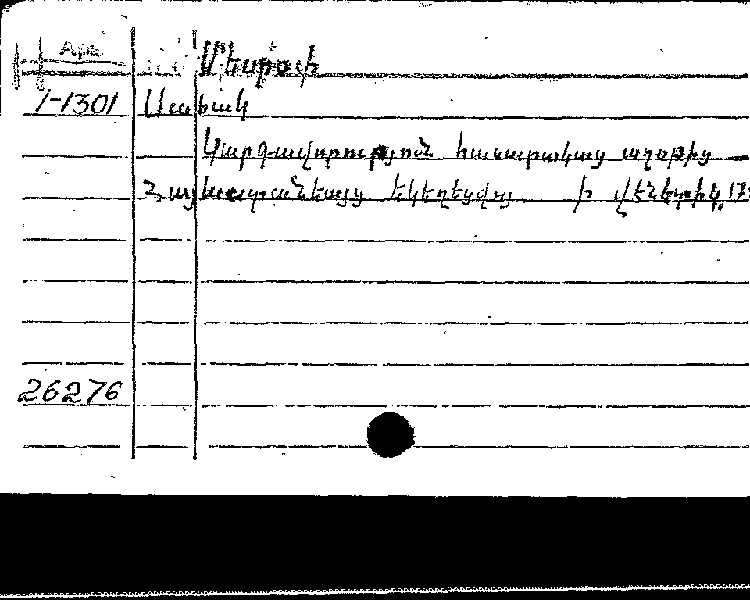 Арм
Մեսրոփ
1-1301 Սահակ
Կարգաւորութիւն հասարակաց աղօթից
Հայաստանեայց եկեղեցւոյ ի վէնետիկ, 17
26276